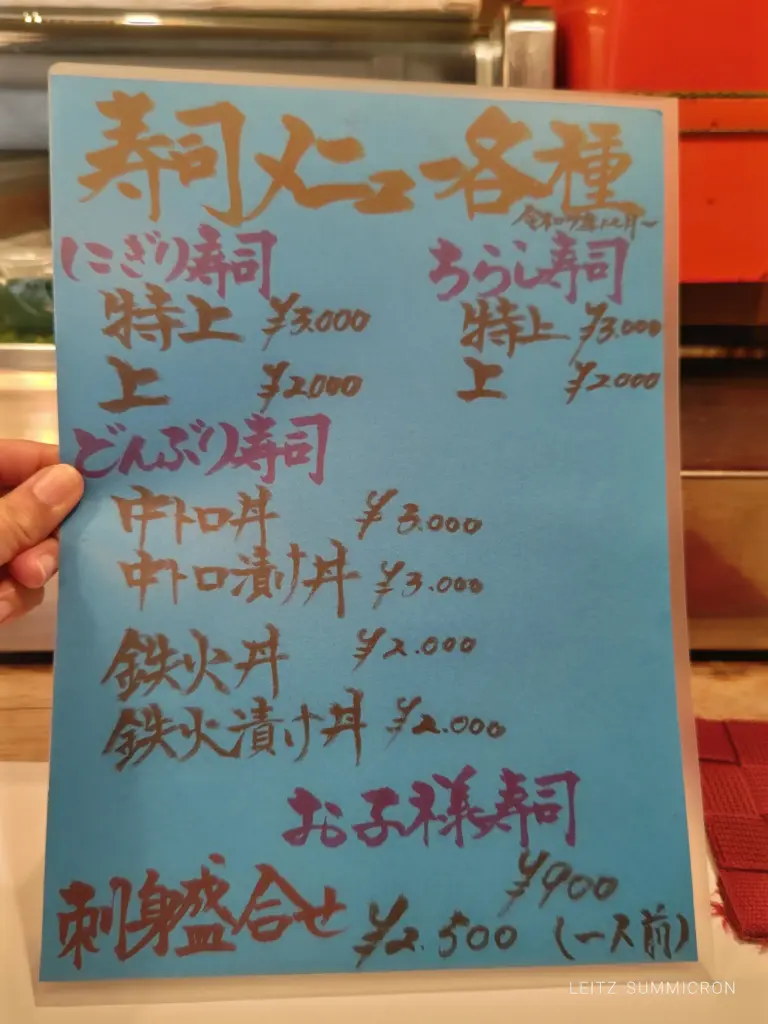 寿司メニュー各種
令和7年12月~
にぎり寿司
特上 ¥3.000
上 ¥2000
ちらし寿司
特上 ¥3.000
上 ¥2000
どんぶり寿司
中トロ丼 ¥3.000
中トロ漬け丼 ¥3.000
鉄火丼 ¥2.000
鉄火漬け丼 ¥2.000
お子様寿司
¥900
刺身盛合せ ¥2.500 (一人前)
LEITZ SUMMICRON